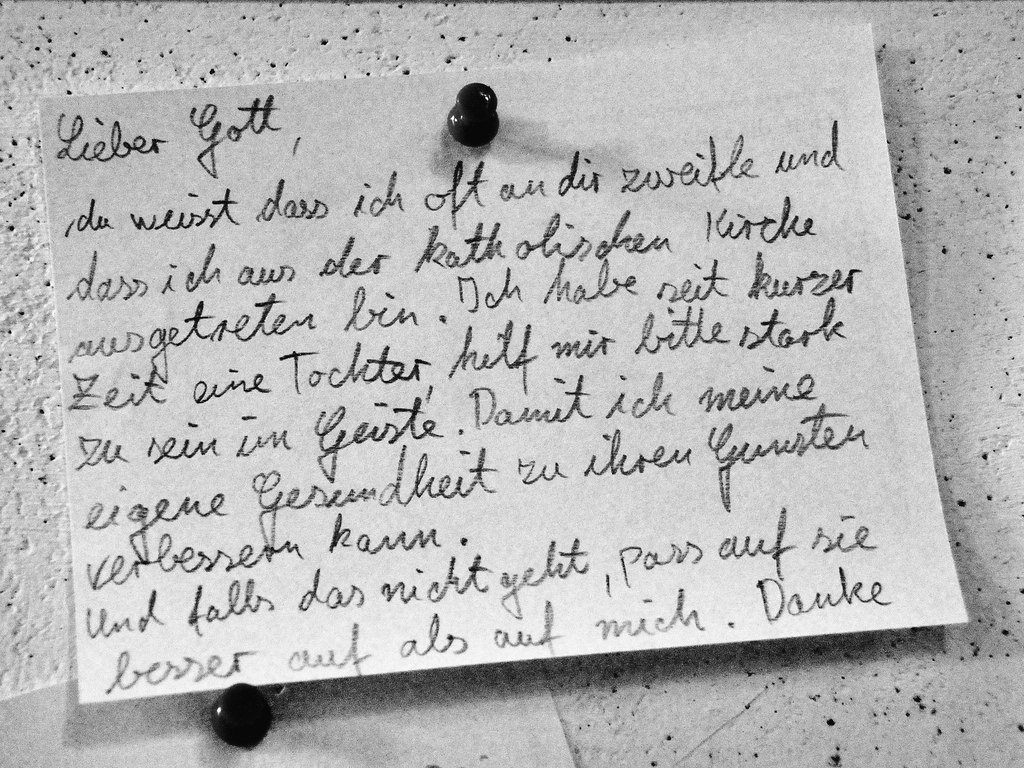 Lieber Gott,
du weisst dass ich oft an dir zweifle und
dass ich aus der katholischen Kirche
ausgetreten bin. Ich habe seit kurzer
Zeit eine Tochter, hilf mir bitte stark
zu sein im Geiste. Damit ich meine
eigene Gesundheit zu ihren Gunsten
verbessern kann.
Und falls das nicht geht, pass auf sie
besser auf als auf mich. Danke